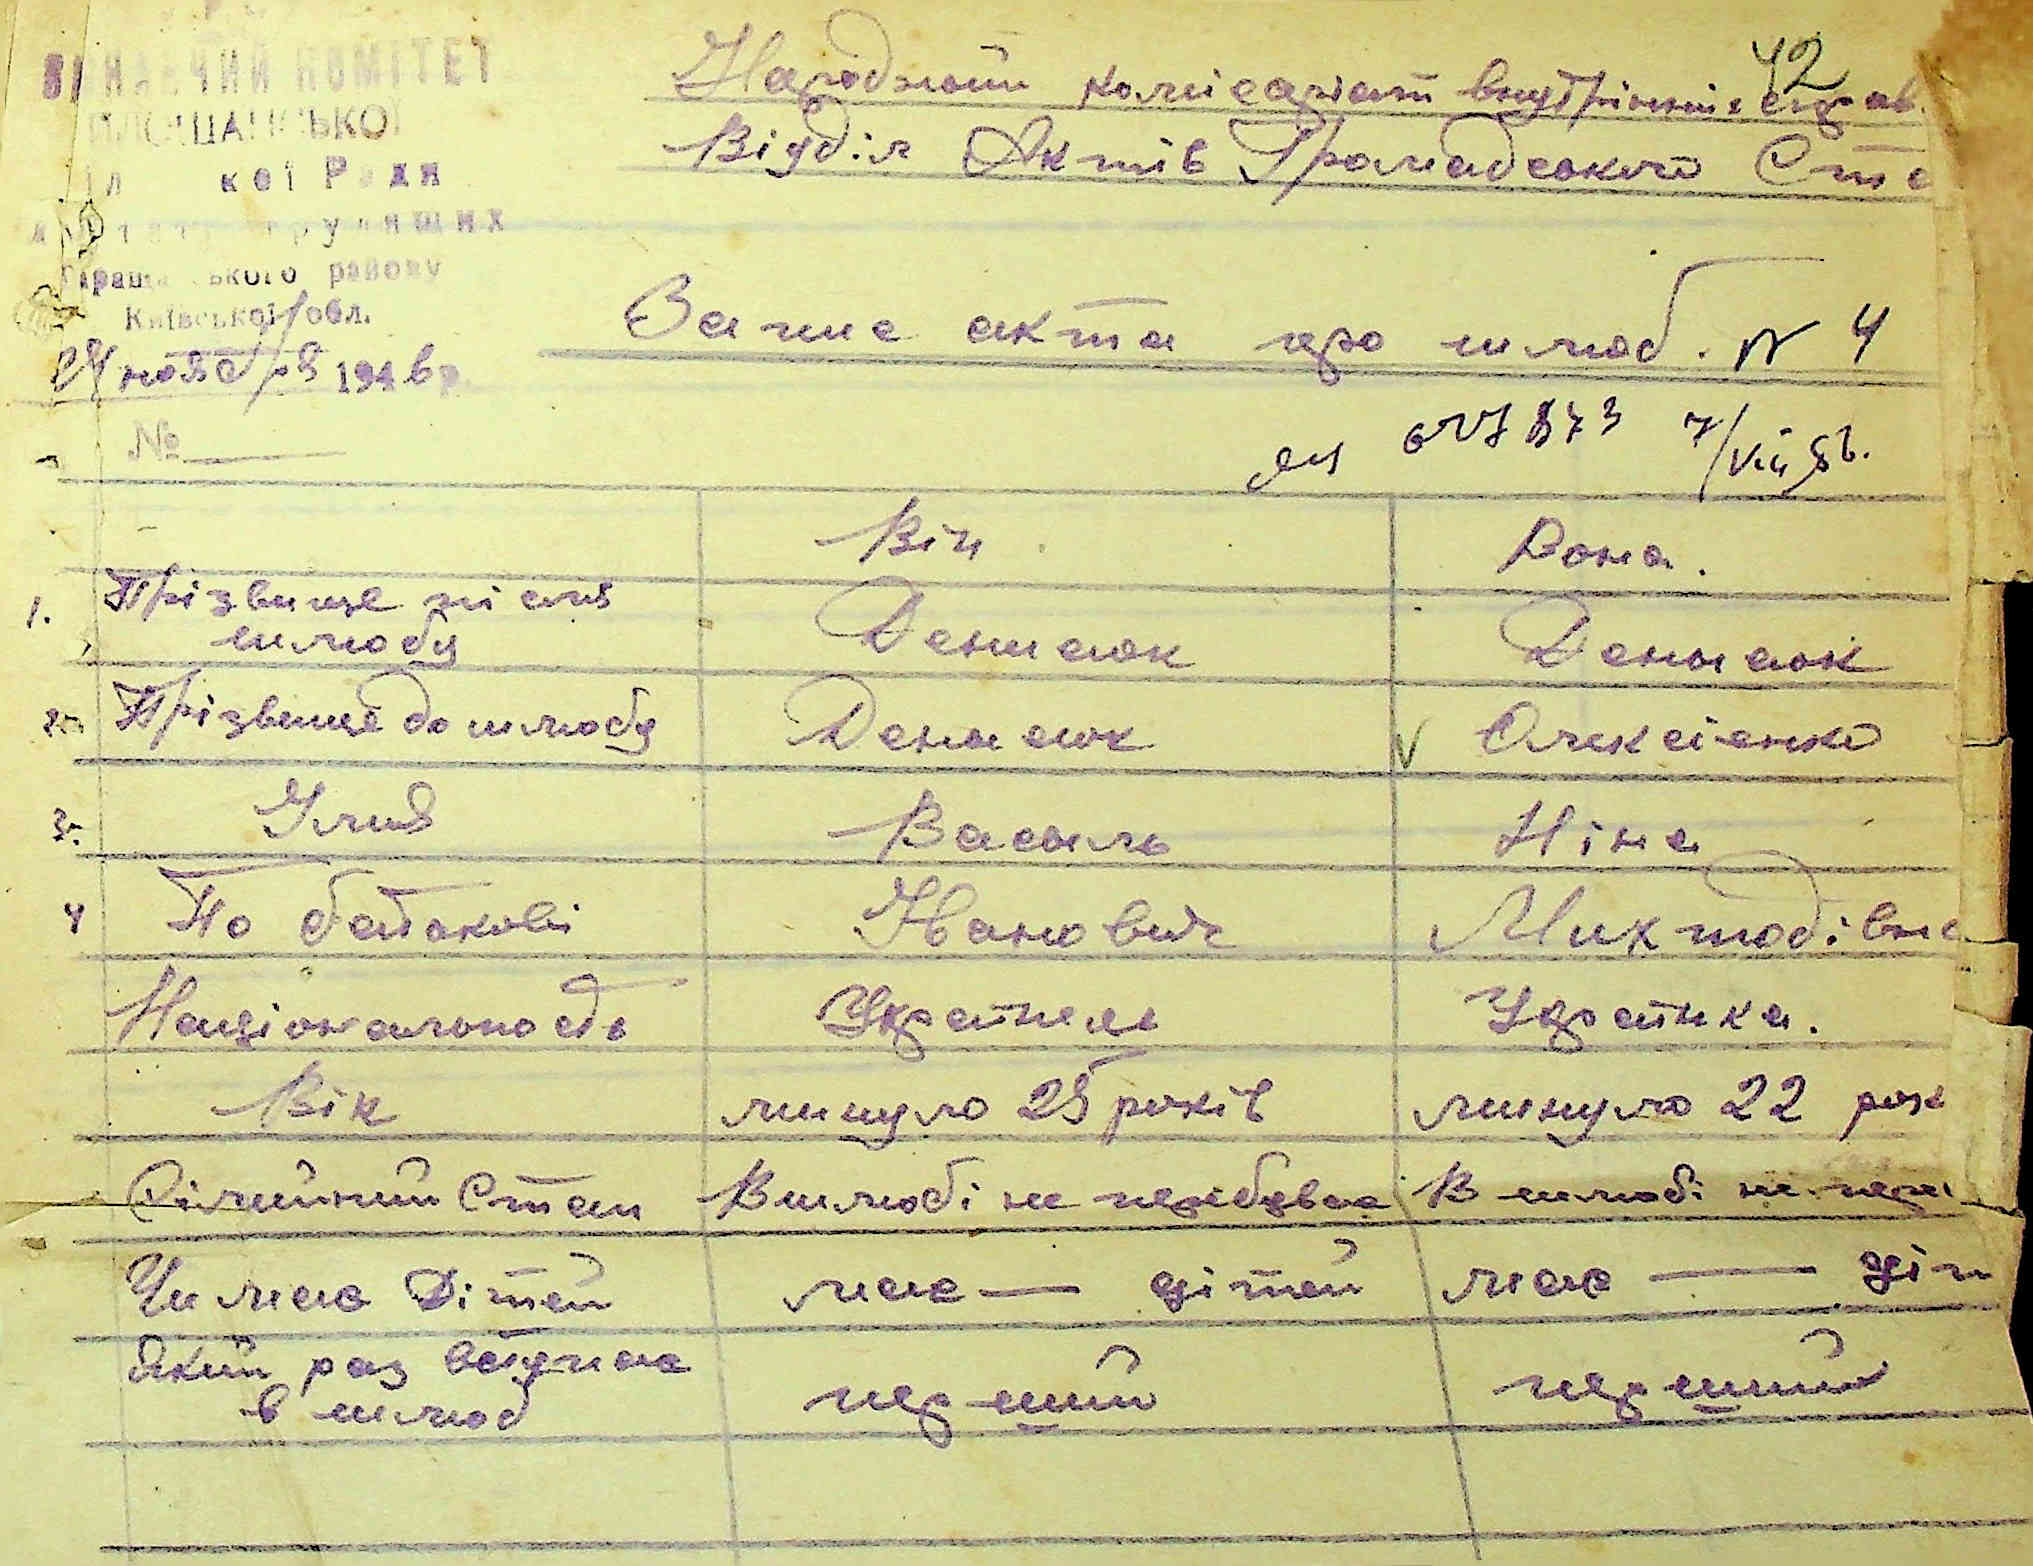 42
КОМІТЕТ
кої Ради
району
Київської обл.
ноября 1946 р.
№
Народний комісаріат внутрішніх справ
Відділ Актів Громадського Ста
Запис акта про шлюб. N 4
Він
Вона.
1. Прізвище після шлюбу
Денисюк
Денисюк
2. Прізвище до шлюбу
Денисюк
V Олексієнко
3. Імя
Василь
Ніна
4 По батькові
Іванович
Національность
Українець
Українка.
Вік
минуло 25 років
минуло 22 рок
Сімейний Стан
В шлюбі не перебував
В шлюбі не пере
Чи має Дітей
має — дітей
має — діт
який раз вступає
в шлюб
перший
перший